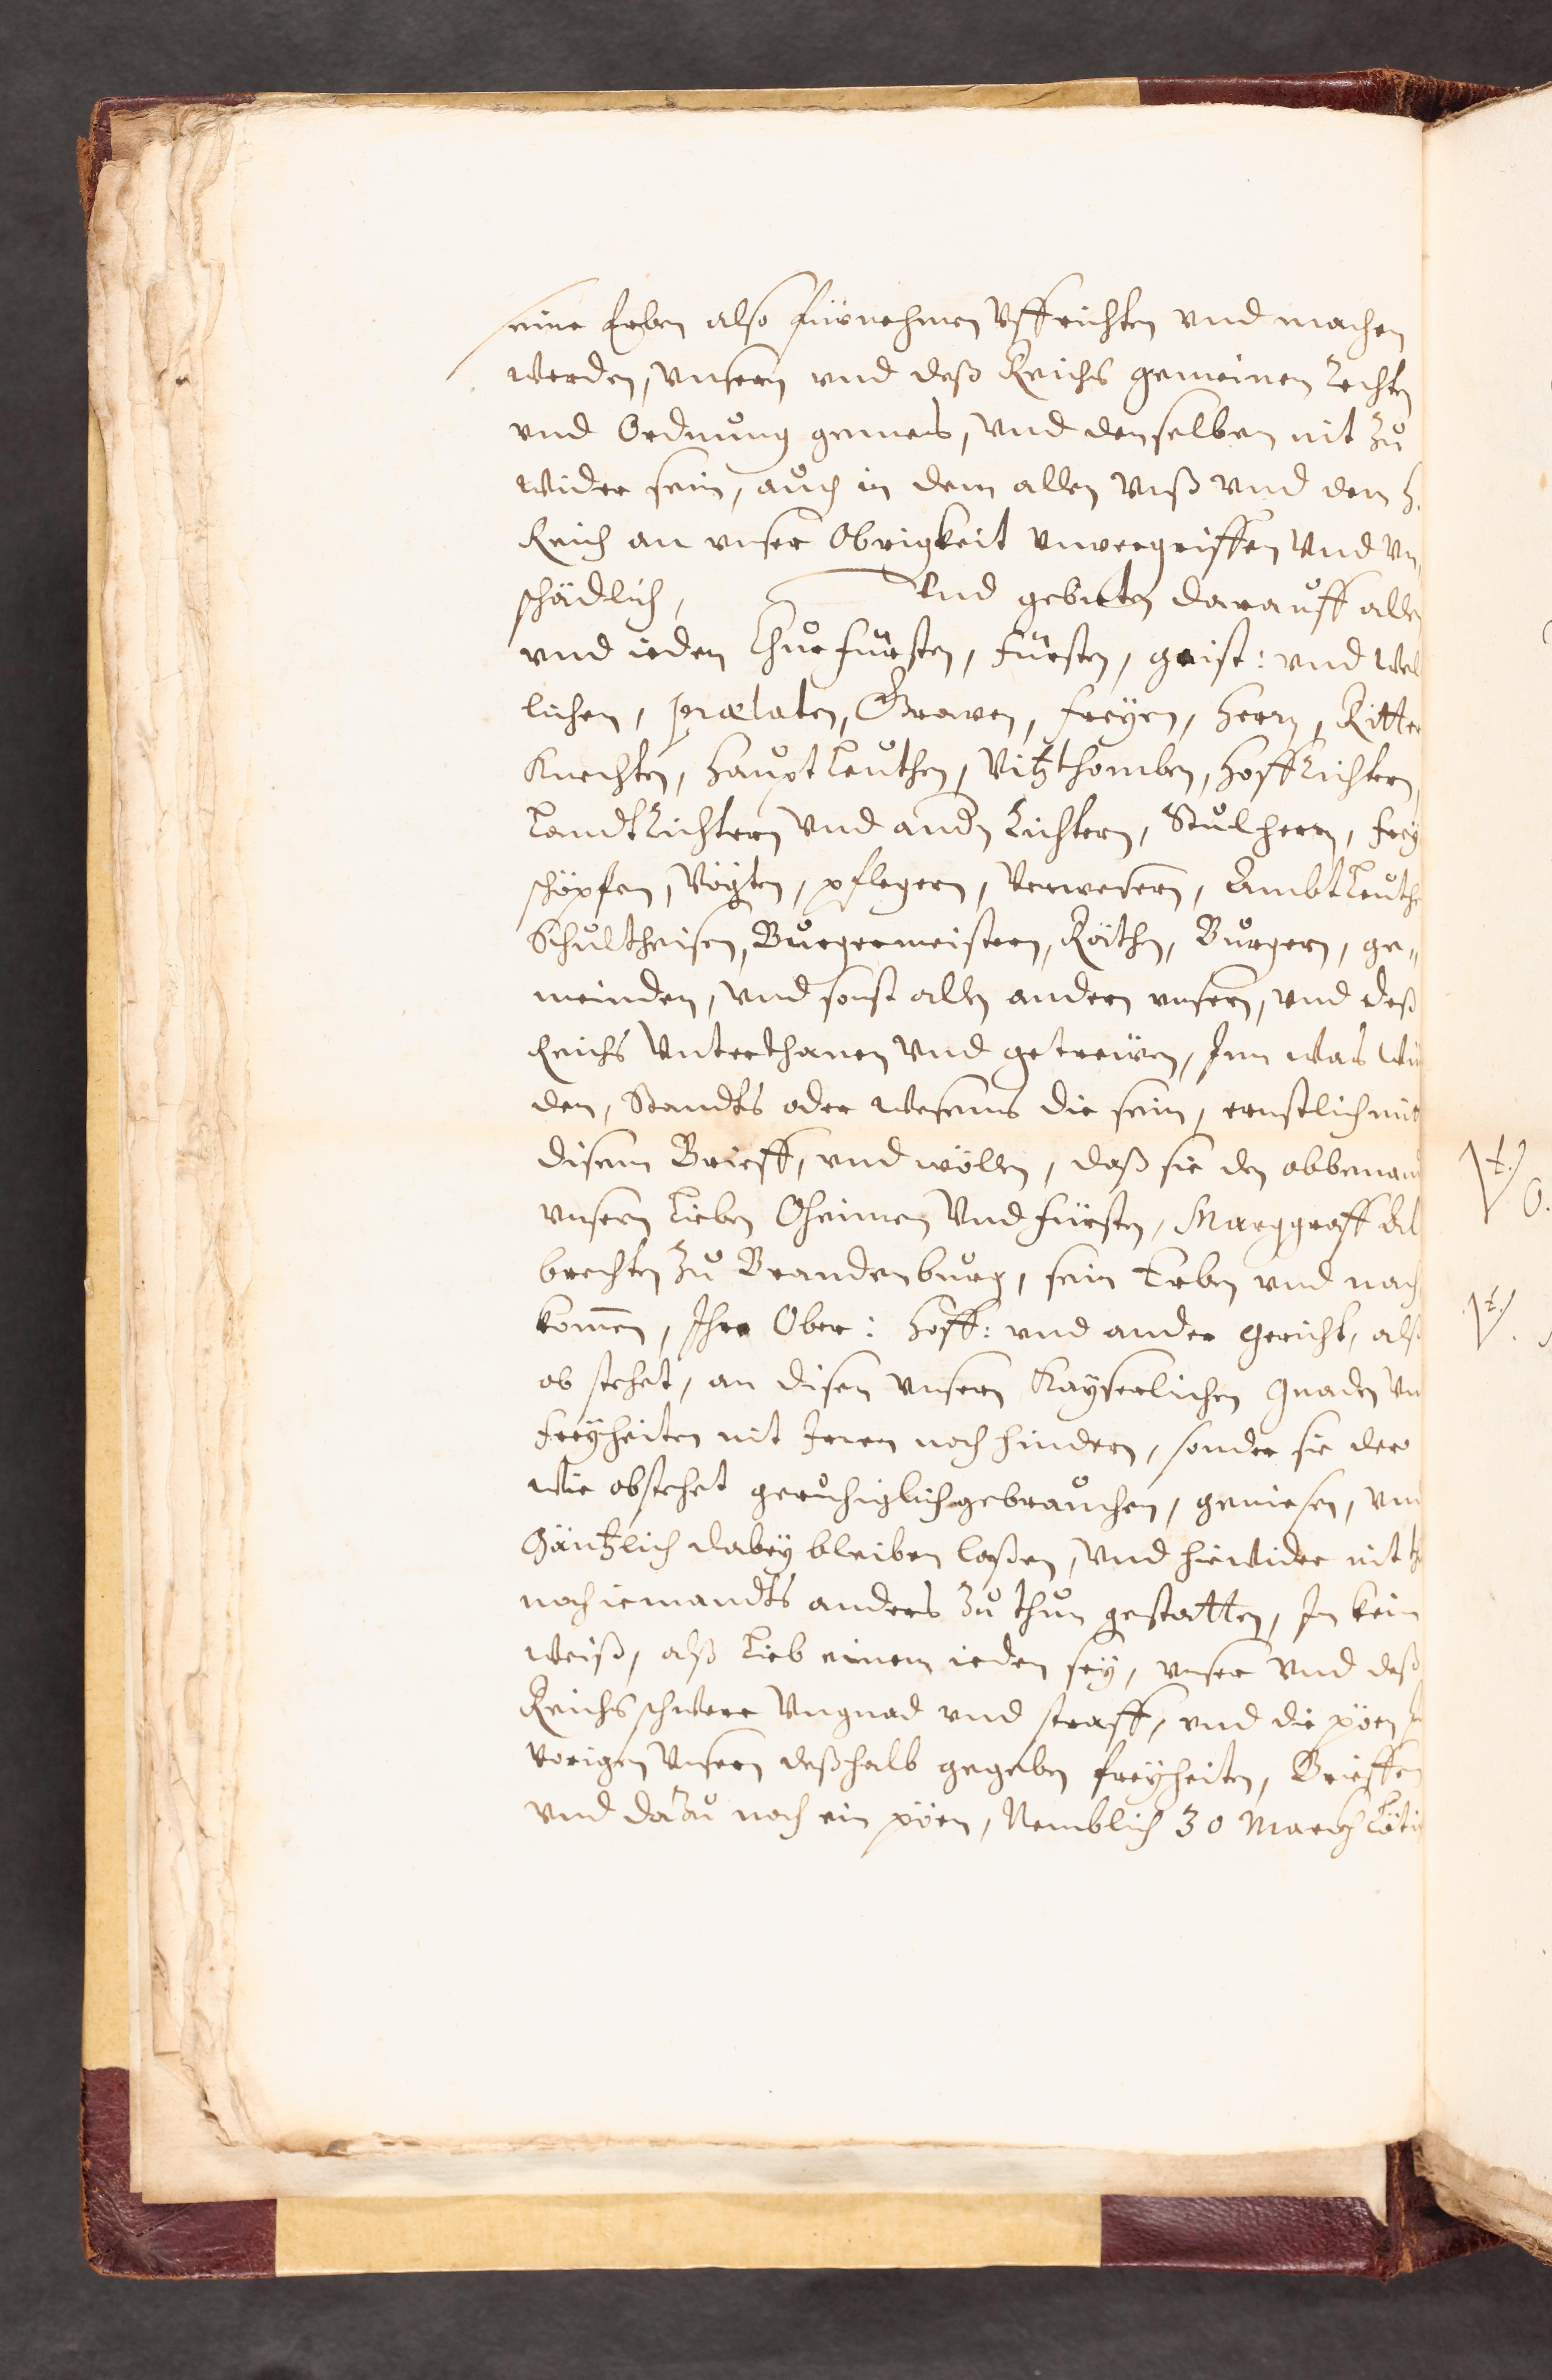 seine Erben also fürnehmen Vffrichten vnd machen
werden, vnsern vnd deß Reichs gemeinen Rechten
vnd Ordnung gemees, vnd denselben nit Zu
wider sein, auch in dem allen vnß vnd dem H.
Reich an vnser Obrigkeit vnvergriffen Vnd vn
schädlich, Vnd gebieten darauff allen
vnd ieden Churfürsten, Fürsten, geist: vnd Wel
lichen, Prælaten, Graven, Freyen, Herrn, Ritter
Knechten, Hauptleuthen, Vitzthomben, HoffRichtern,
LandtRichtern Vnd andn Richtern, Stulherrn, Frey
schöpfen, Vögten, pflegern, Verwesern, Ambtleuthe
Schultheisen, Burgermeistern, Räthen, Burgern, ge„
meinden, vnd sonst allen andern vnsern, vnd deß
Reichs Vnterthanen Vnd getrewen, Inn was Wür
den, Standts oder Wesenns die sein, ernstlich mit
disem Brieff, vnd wöllen, daß sie den obbenan
vnsern Lieben Oheimen Vnd Fürsten, Marggraff Al
brechten Zu Brandenburg, sein Erben vnd nach
kom̅en, Ihre Ober: Hoff: vnd ander Gericht, alß
ob stehet, an disen Vnsern Kayserlichen Gnaden Vn
Freyheiten nit Irren noch hindern, sonder sie der
wie obstehet geruhiglich gebrauchen, geniesen, vn
Gäntzlich dabey bleiben laßen, Vnd hiewider nit
noch iemandts anders Zu thun gestatten, In kein
weiß, alß Lieb einem ieden sey, vnser Vnd deß
Reichs schwere Vngnad vnd straff, vnd die pöen
vorigen Vnsern deßhalb gegeben Freyheiten, Brieffen
vnd daZu noch ein pöen, Nemblich 30 March Lötig